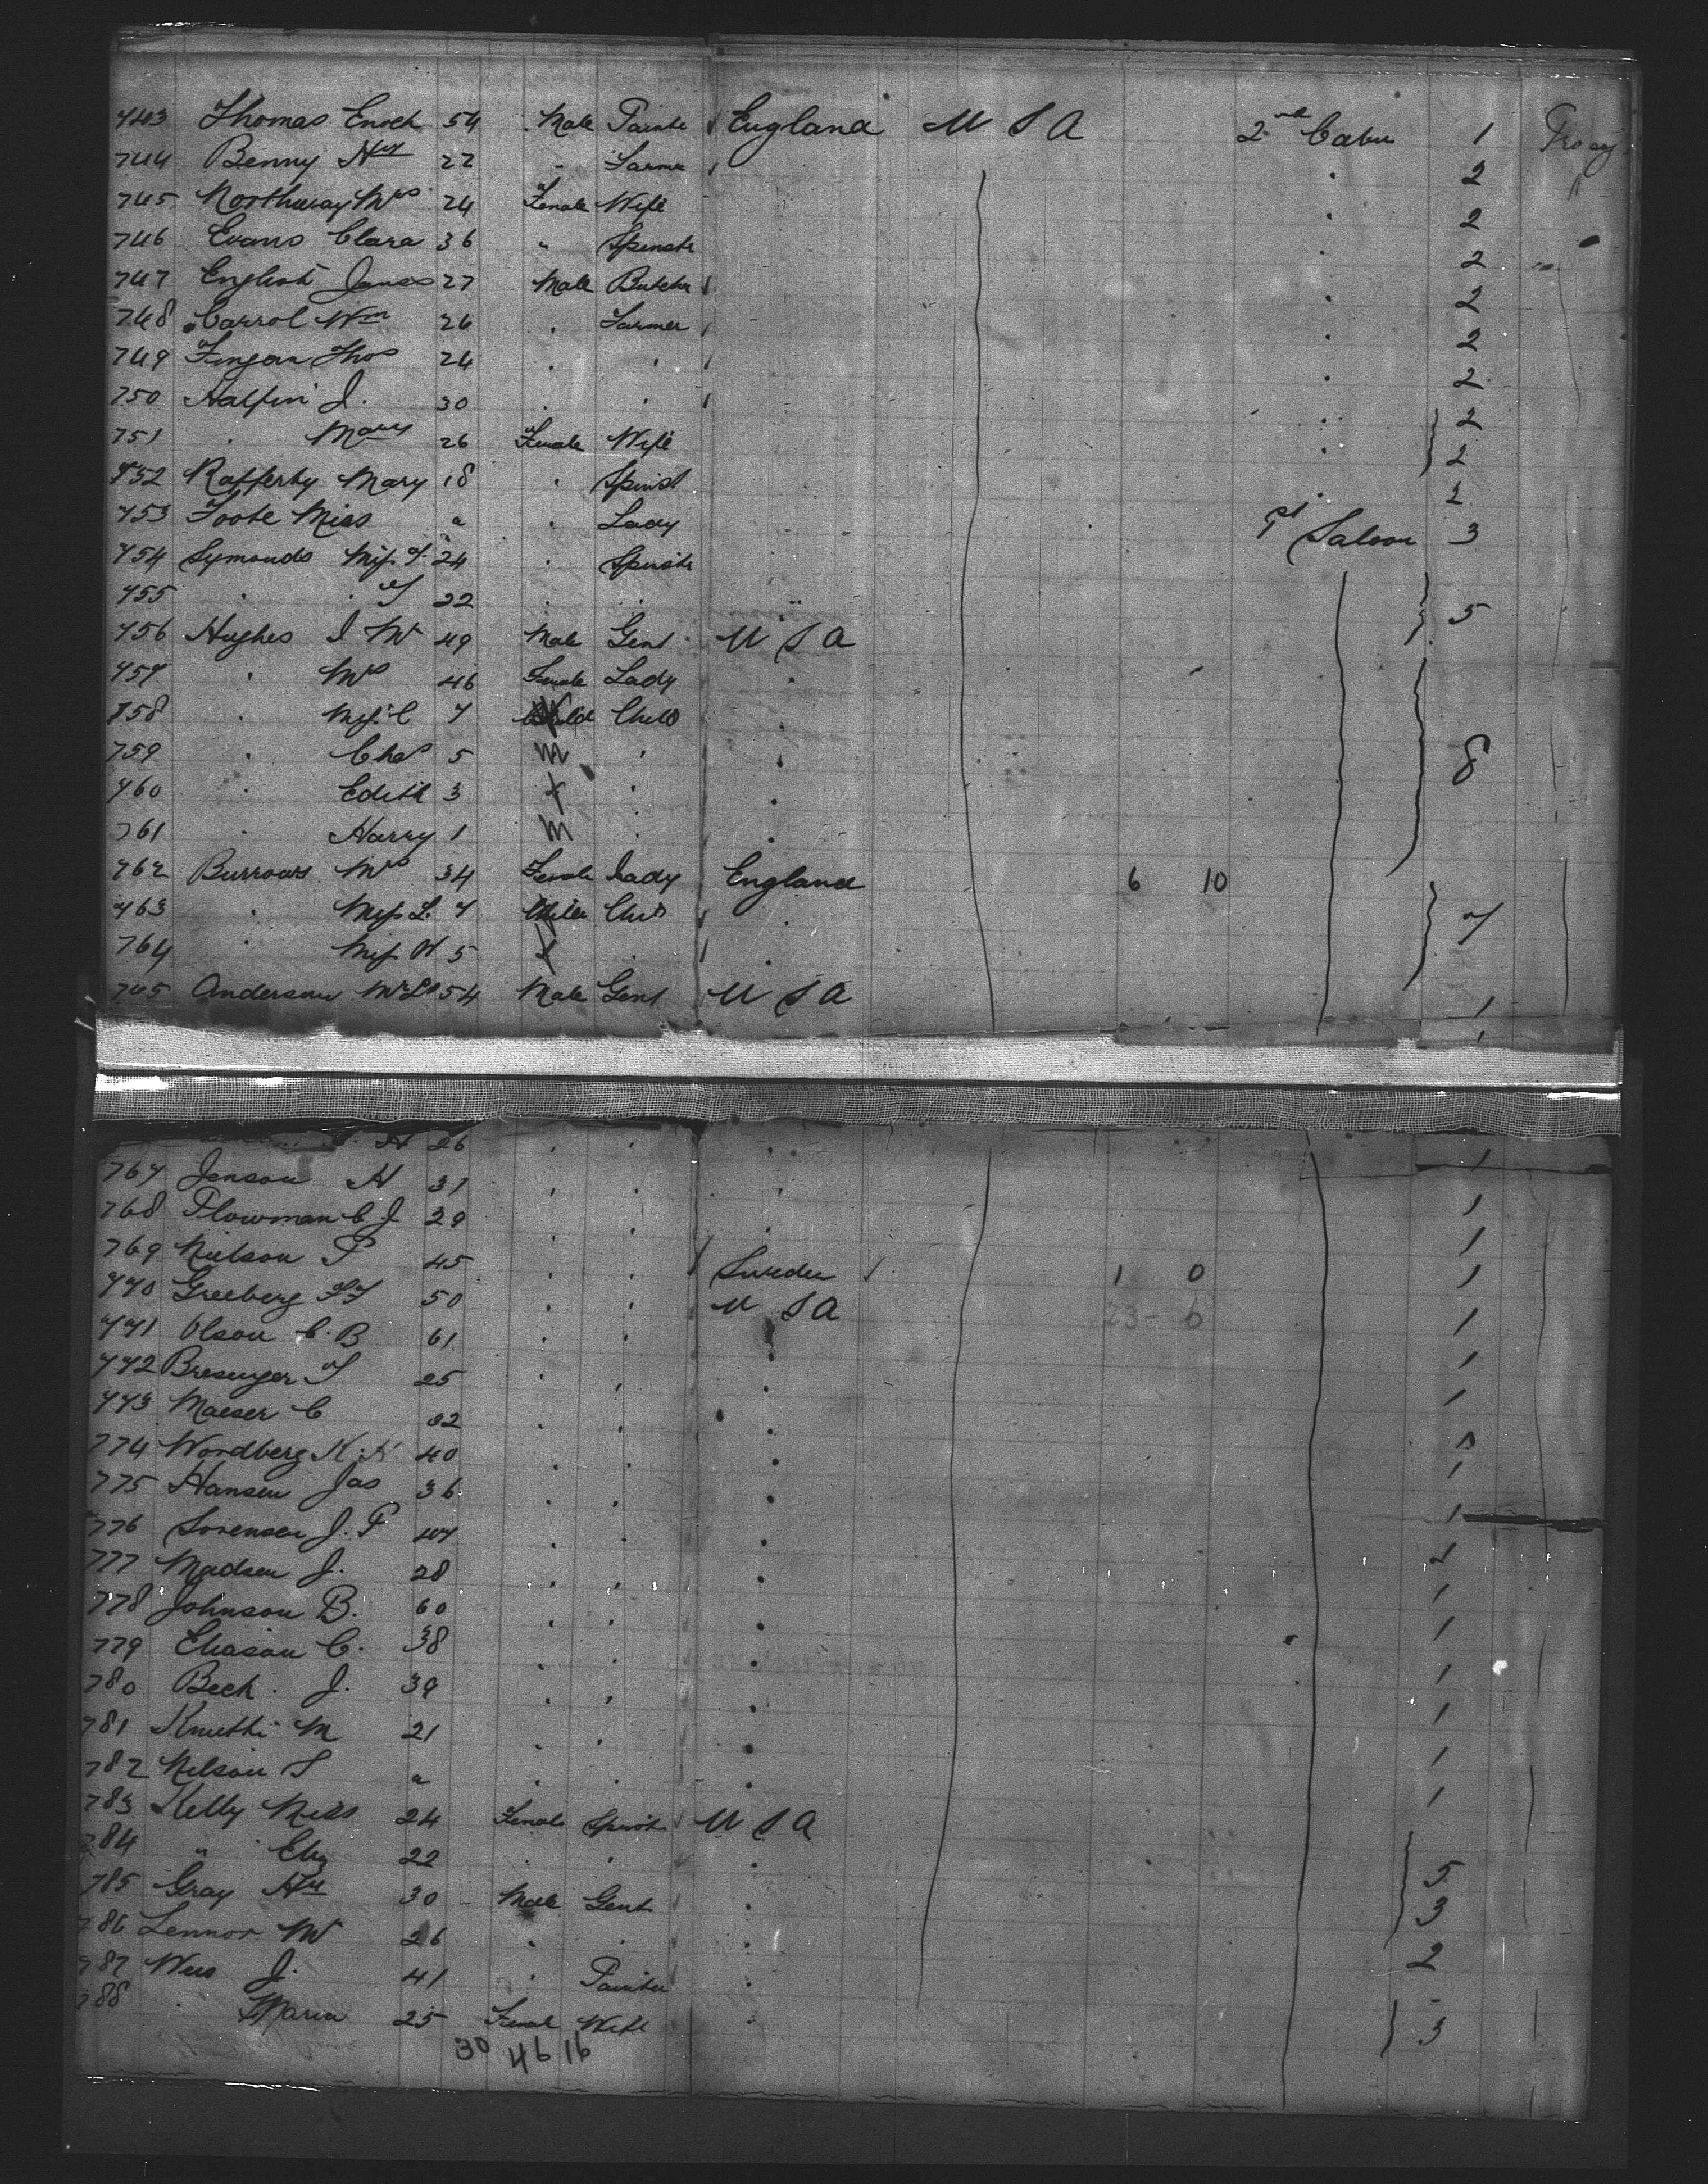 743 Thomas Enoch 54 Male Painte England U S A 2nd Cabin 1
744 Benny Hy 22 " Farmer 2
745 Northway Mrs 24 Female Wife 2
746 Evans Clara 36 " Spinstr 2
747 English James 27 Male Butcher 2
748 Carrol Wm 26 Farmer 2
749 Finjan Thos 24 2
750 Halfin J. 30 2
751 Mary 26 Female Wife 2
752 Rafferty Mary 18 Spinst 2
753 Foote Miss a Lady 1st Saloon 3
754 Symonds Miss F. 24 Spinstr
755 " " T 22 5
756 Hughes J W 49 Male Gent U S A
757 " Mrs 46 Female Lady
758 " Miss C 7 Child
759 " Chas 5 M 8
760 " Edith 3 f
761 " Harry 1 M
762 Burrows Mrs 34 Female Lady England 6 10
763 " Miss L. 7 Child 7
764 " Miss H 5 f
765 Anderson 54 Male Gent U S A 1
H 26 1
767 Jenson H 31 1
768 Plowman C J 29 1
769 Nielson P 45 Sweden 1 0 1
770 Greeberg 50 U S A 23 - 6 1
771 Olson C. B 61 1
772 T 25 1
773 Maeser C 32 1
774 Wordberg K. K 40 1
775 Hansen Jas 36 1
776 Sorensen J. P 47 1
777 Madsen J. 28 1
778 Johnson B. 60 1
779 Eliason C. 38 1
780 Beck J. 39 1
781 Knuthi M 21 1
782 Nilson S a 1
783 Kelly Miss 24 Female Spinst U S A
784 " Eliz 22 5
785 Gray Hy 30 Male Gent 3
786 Lennor W 26 2
787 J. 41 Painter
788 Maria 25 Female Wife 3
30 46 16